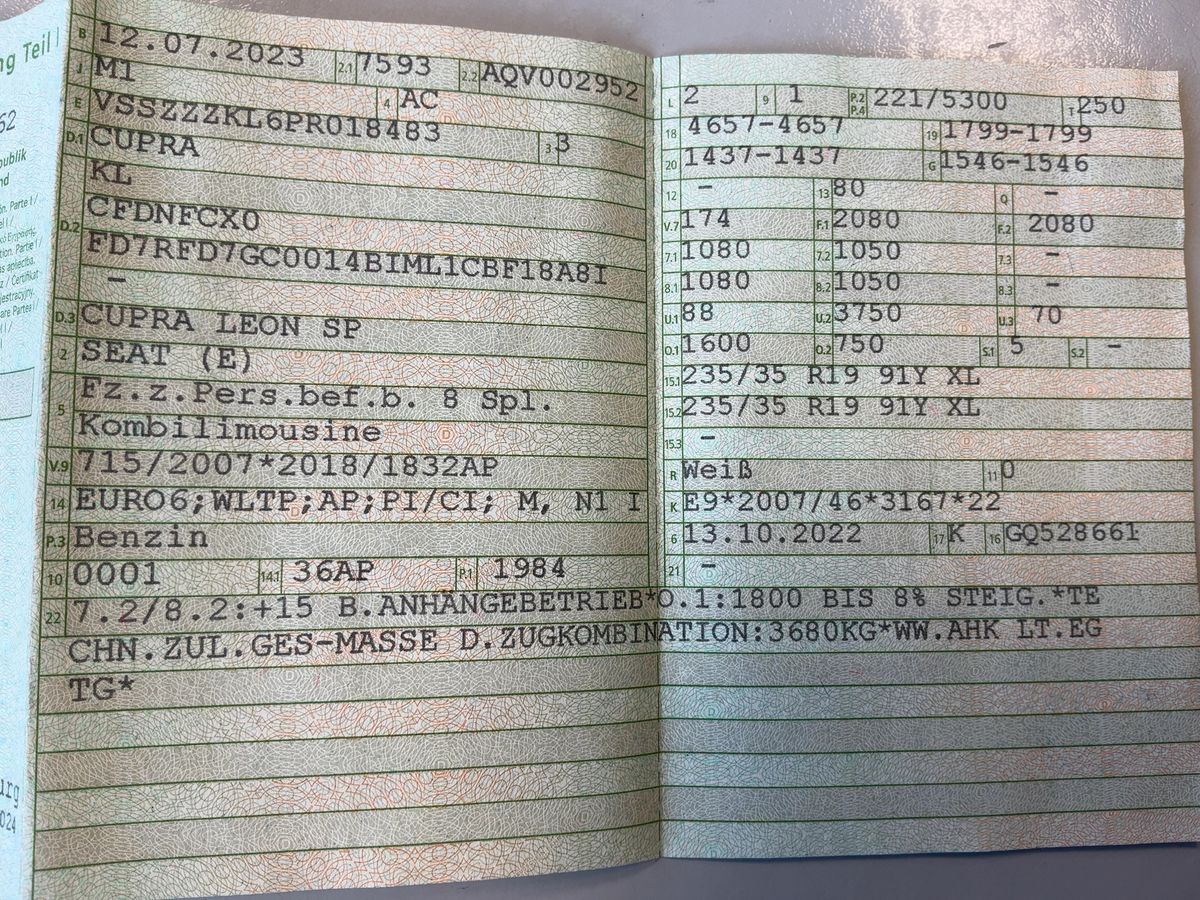 ng Teil I
62
publik
nd
ón. Parte I /
el I /
κό Εγγραφης
ation. Parte I /
s apliecība.
z / Certifikat
jestracyjny.
are Partea I
I /
urg
024
B 12.07.2023 2.1 7593 2.2 AQV002952
J M1 4 AC
E VSSZZZKL6PR018483 3 3
D.1 CUPRA
KL
D.2 CFDNFCX0
FD7RFD7GC0014BIML1CBF18A8I
–
D.3 CUPRA LEON SP
2 SEAT (E)
5 Fz.z.Pers.bef.b. 8 Spl.
Kombilimousine
V.9 715/2007*2018/1832AP
14 EURO6;WLTP;AP;PI/CI; M, N1 I
P.3 Benzin
10 0001 14.1 36AP P.1 1984
L 2 9 1 P.2 P.4 221/5300 T 250
18 4657-4657 19 1799-1799
20 1437-1437 G 1546-1546
12 – 13 80 Q –
V.7 174 F.1 2080 F.2 2080
7.1 1080 7.2 1050 7.3 –
8.1 1080 8.2 1050 8.3 –
U.1 88 U.2 3750 U.3 70
O.1 1600 O.2 750 S.1 5 S.2 –
15.1 235/35 R19 91Y XL
15.2 235/35 R19 91Y XL
15.3 –
R Weiß 11 0
K E9*2007/46*3167*22
6 13.10.2022 17 K 16 GQ528661
21 –
22 7.2/8.2:+15 B.ANHÄNGEBETRIEB*O.1:1800 BIS 8% STEIG.*TE
CHN.ZUL.GES-MASSE D.ZUGKOMBINATION:3680KG*WW.AHK LT.EG
TG*